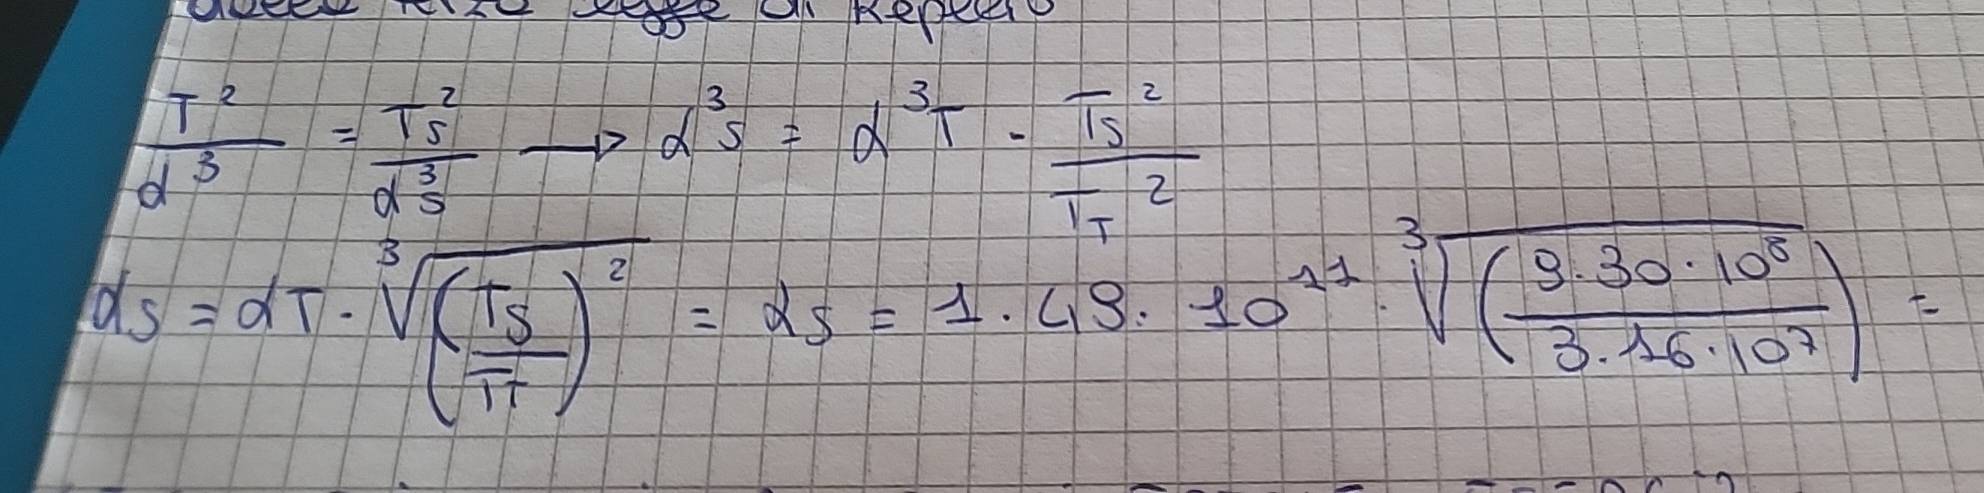 della terza legge di Keplero
T²/d³ = Ts²/d³s → d³s = d³T · Ts²/T_T²
ds = dT · ∛(Ts/T_T)² = ds = 1.49 · 10¹¹ · ∛(9.30 · 10⁸/3.16 · 10⁷) =